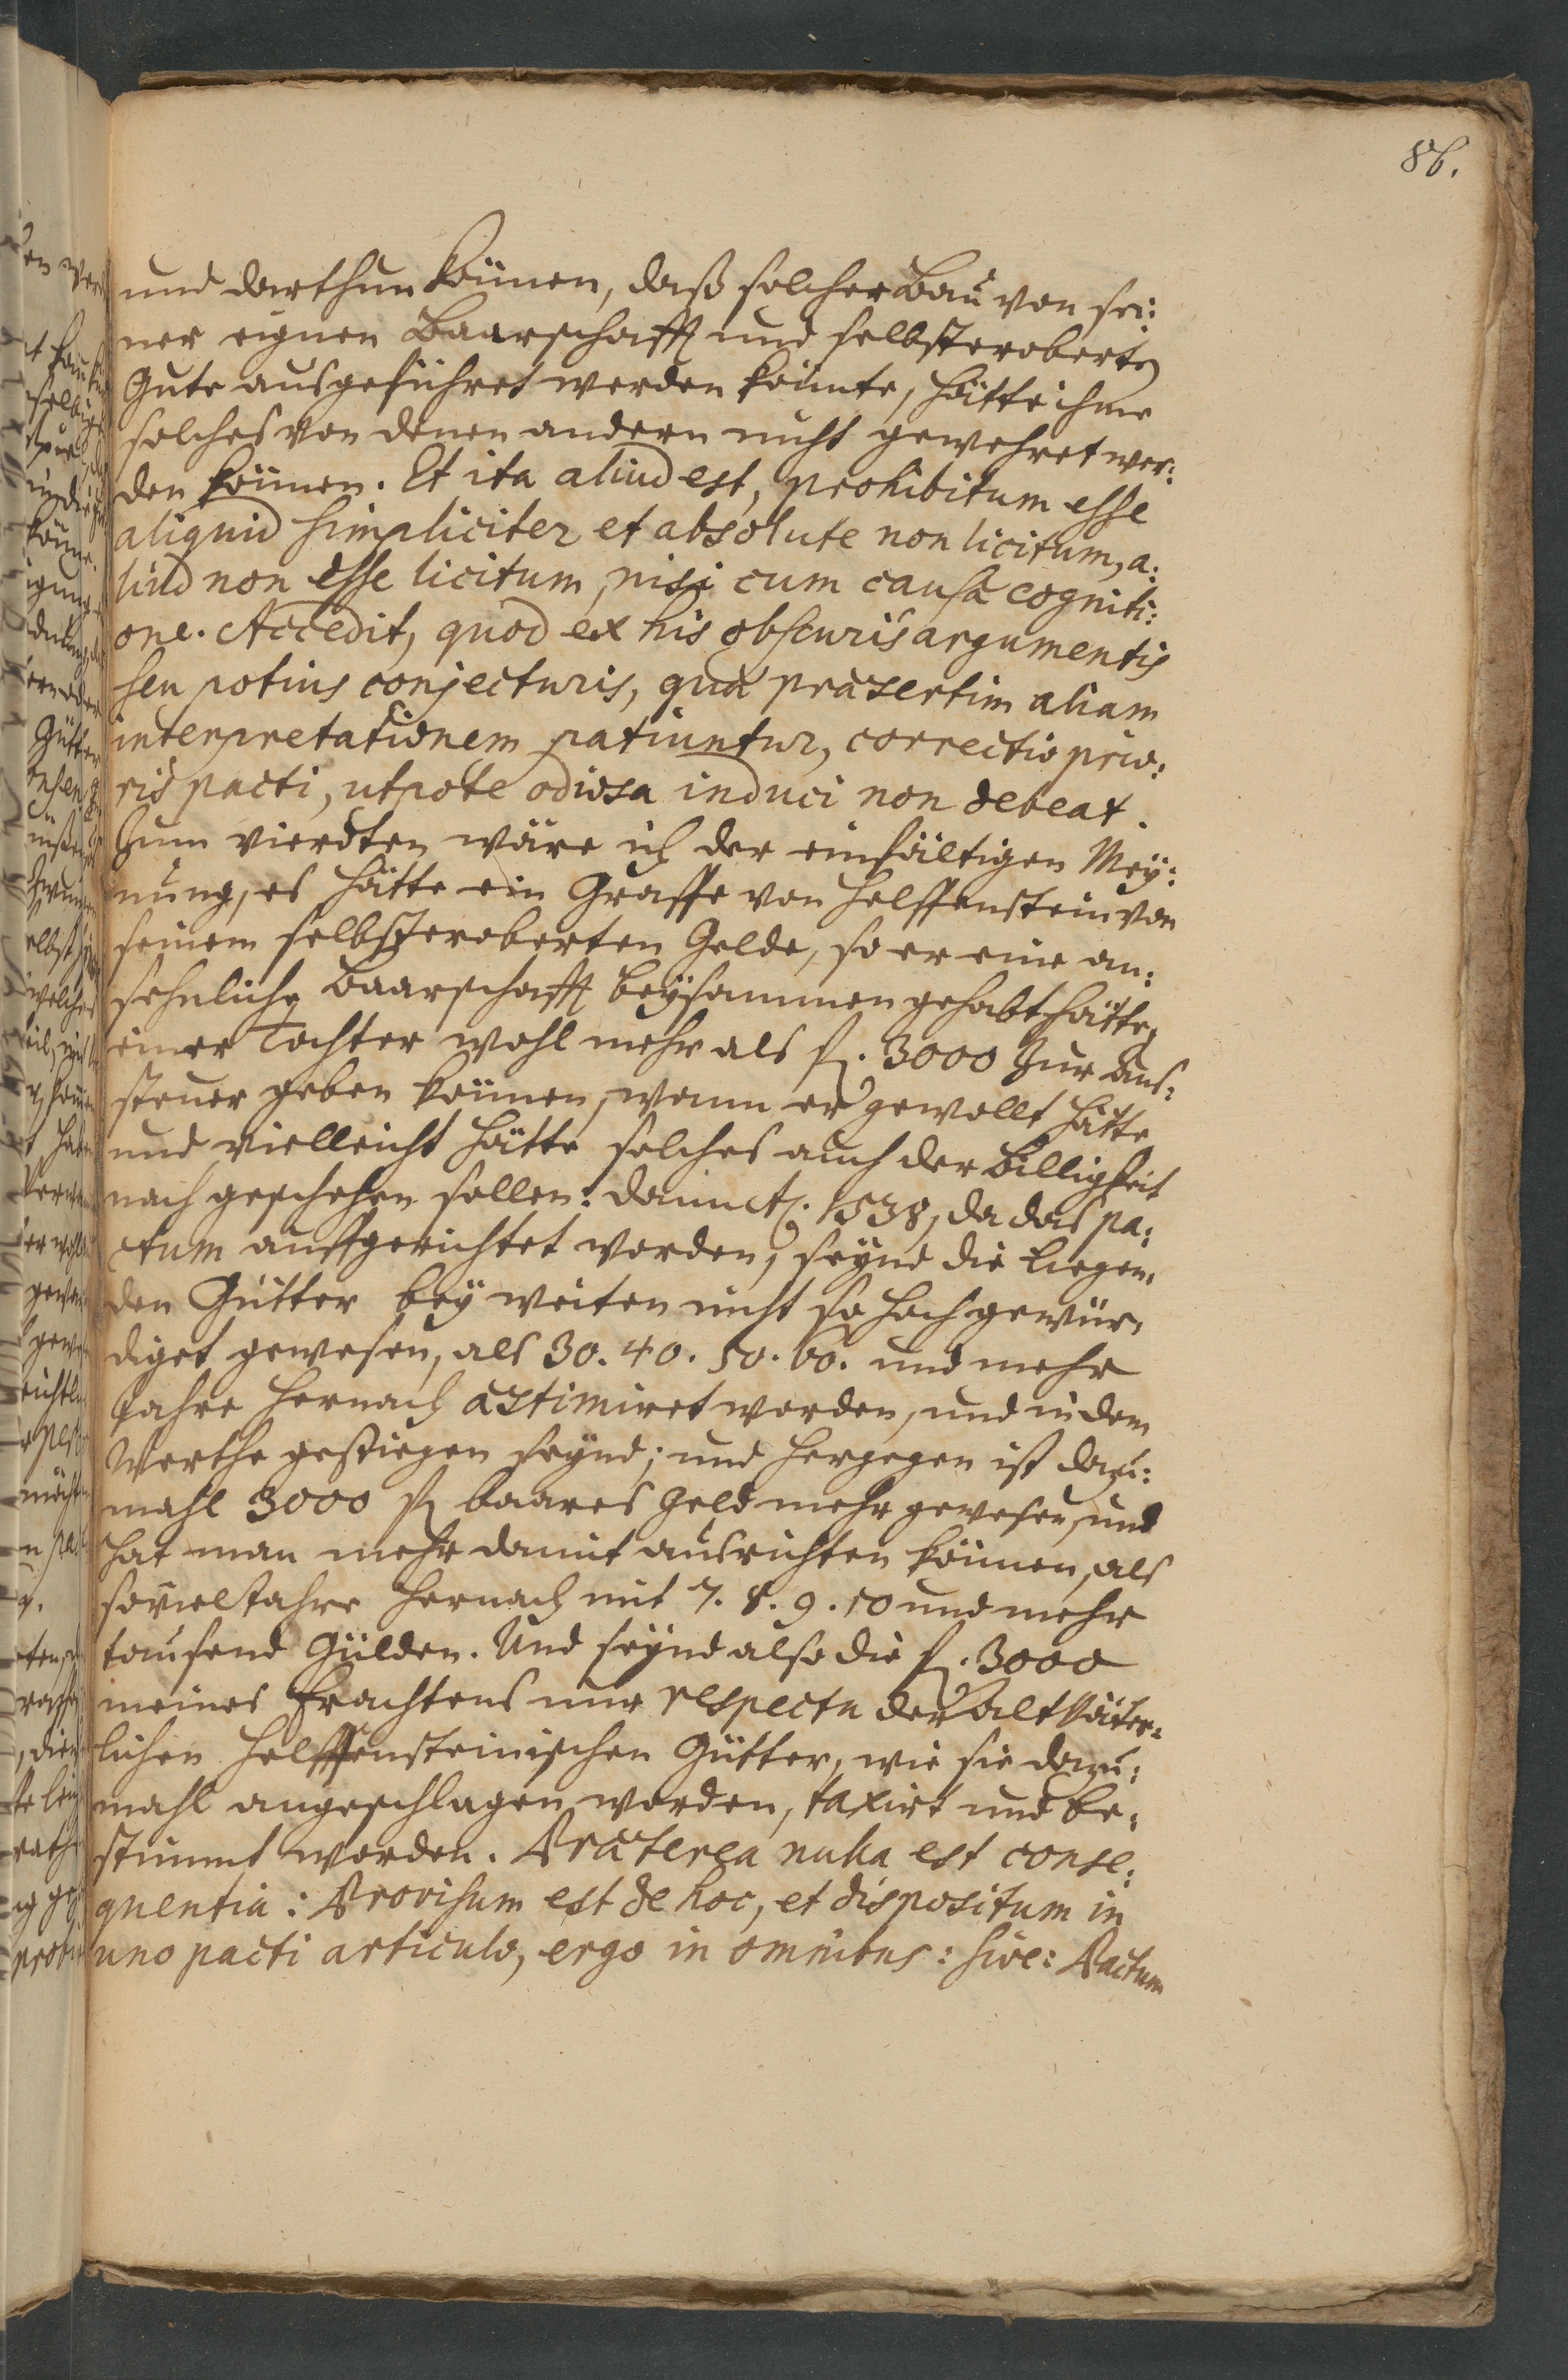 86.
und darthun können, daß solcher Bau von sei:
ner eignen Baarschafft und selbsteroberten
Gute ausgeführet werden könnte, hätte ihme
solches von denen andern nicht gewehret wer:
den können. Et ita aliud est, prohibitum esse
aliquid simpliciter et absolute non licitum, a:
liud non esse licitum, nisi cum causæ cogniti:
one. Accedit, quod ex his obscuris argumentis
seu potius conjecturis, quæ præsertim aliam
interpretationem patiuntur, correctio prio:
ris pacti, utpote odiosa induci non debeat.
Zum vierdten wäre ich der einfältigen Mey:
nung, es hätte ein Graffe von Helffenstein von
seinem selbsteroberten Gelde, so er eine an:
sehnliche Baarschafft beysammen gehabt hätte,
einer Tochter wohl mehr als fl. 3000 zur Aus:
steuer geben können, wenn er gewollt hätte
und vielleicht hätte solches auch der Billigkeit
nach geschehen sollen: dann A. 1538, da das pa:
ctum auffgerichtet worden, seynd die liegen:
den Gütter bey weiten nicht so hoch gewür:
diget gewesen, als 30. 40. 50. 60. und mehr
Jahre hernach æstimiret worden, und in dem
Werthe gestiegen seynd; und hergegen ist dazu:
mahl 3000 fl baares Geld mehr gewesen, und
hat man mehr damit ausrichten können, als
soviel Jahre hernach mit 7. 8. 9. 10 und mehr
tausend Gülden. Und seynd also die fl. 3000
meines Erachtens nur respectu der Altväter:
lichen Helffensteinischen Gütter, wie sie dazu:
mahl angeschlagen worden, taxirt und be:
stimmt worden. Præterea nulla est conse:
quentia: Provisum est de hoc, et dispositum in
uno pacti articulo, ergo in omnibus: sive: Pactum